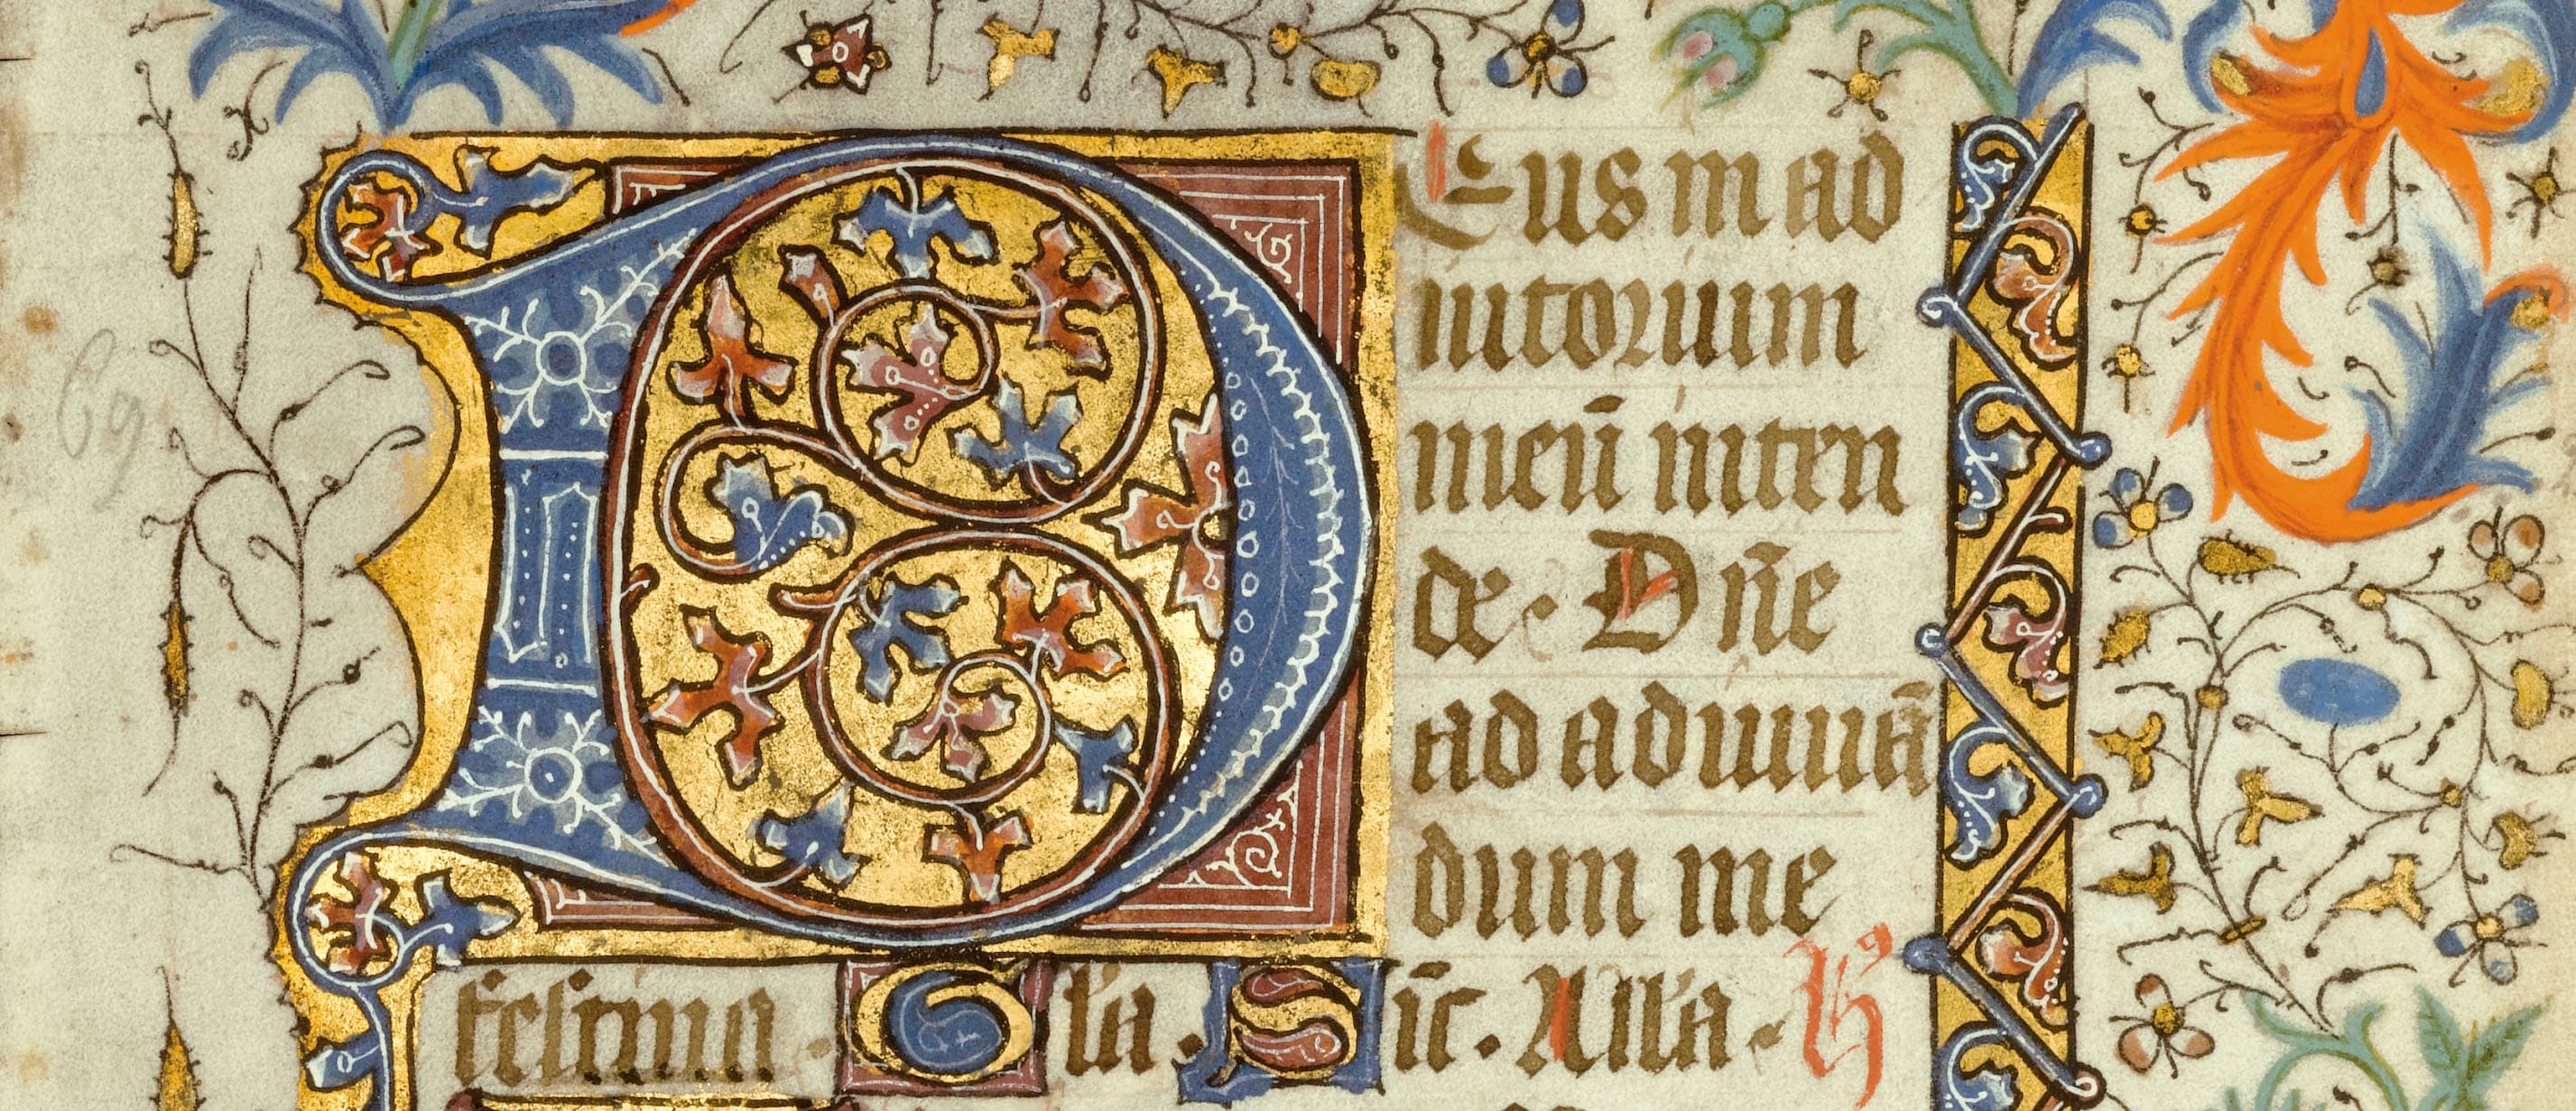 DEus in ad
iutorium
meū inten
de. Dn̄e
ad adiuuā
dum me
festina. Gl'a. Sic̄. All'a. h᾿
69